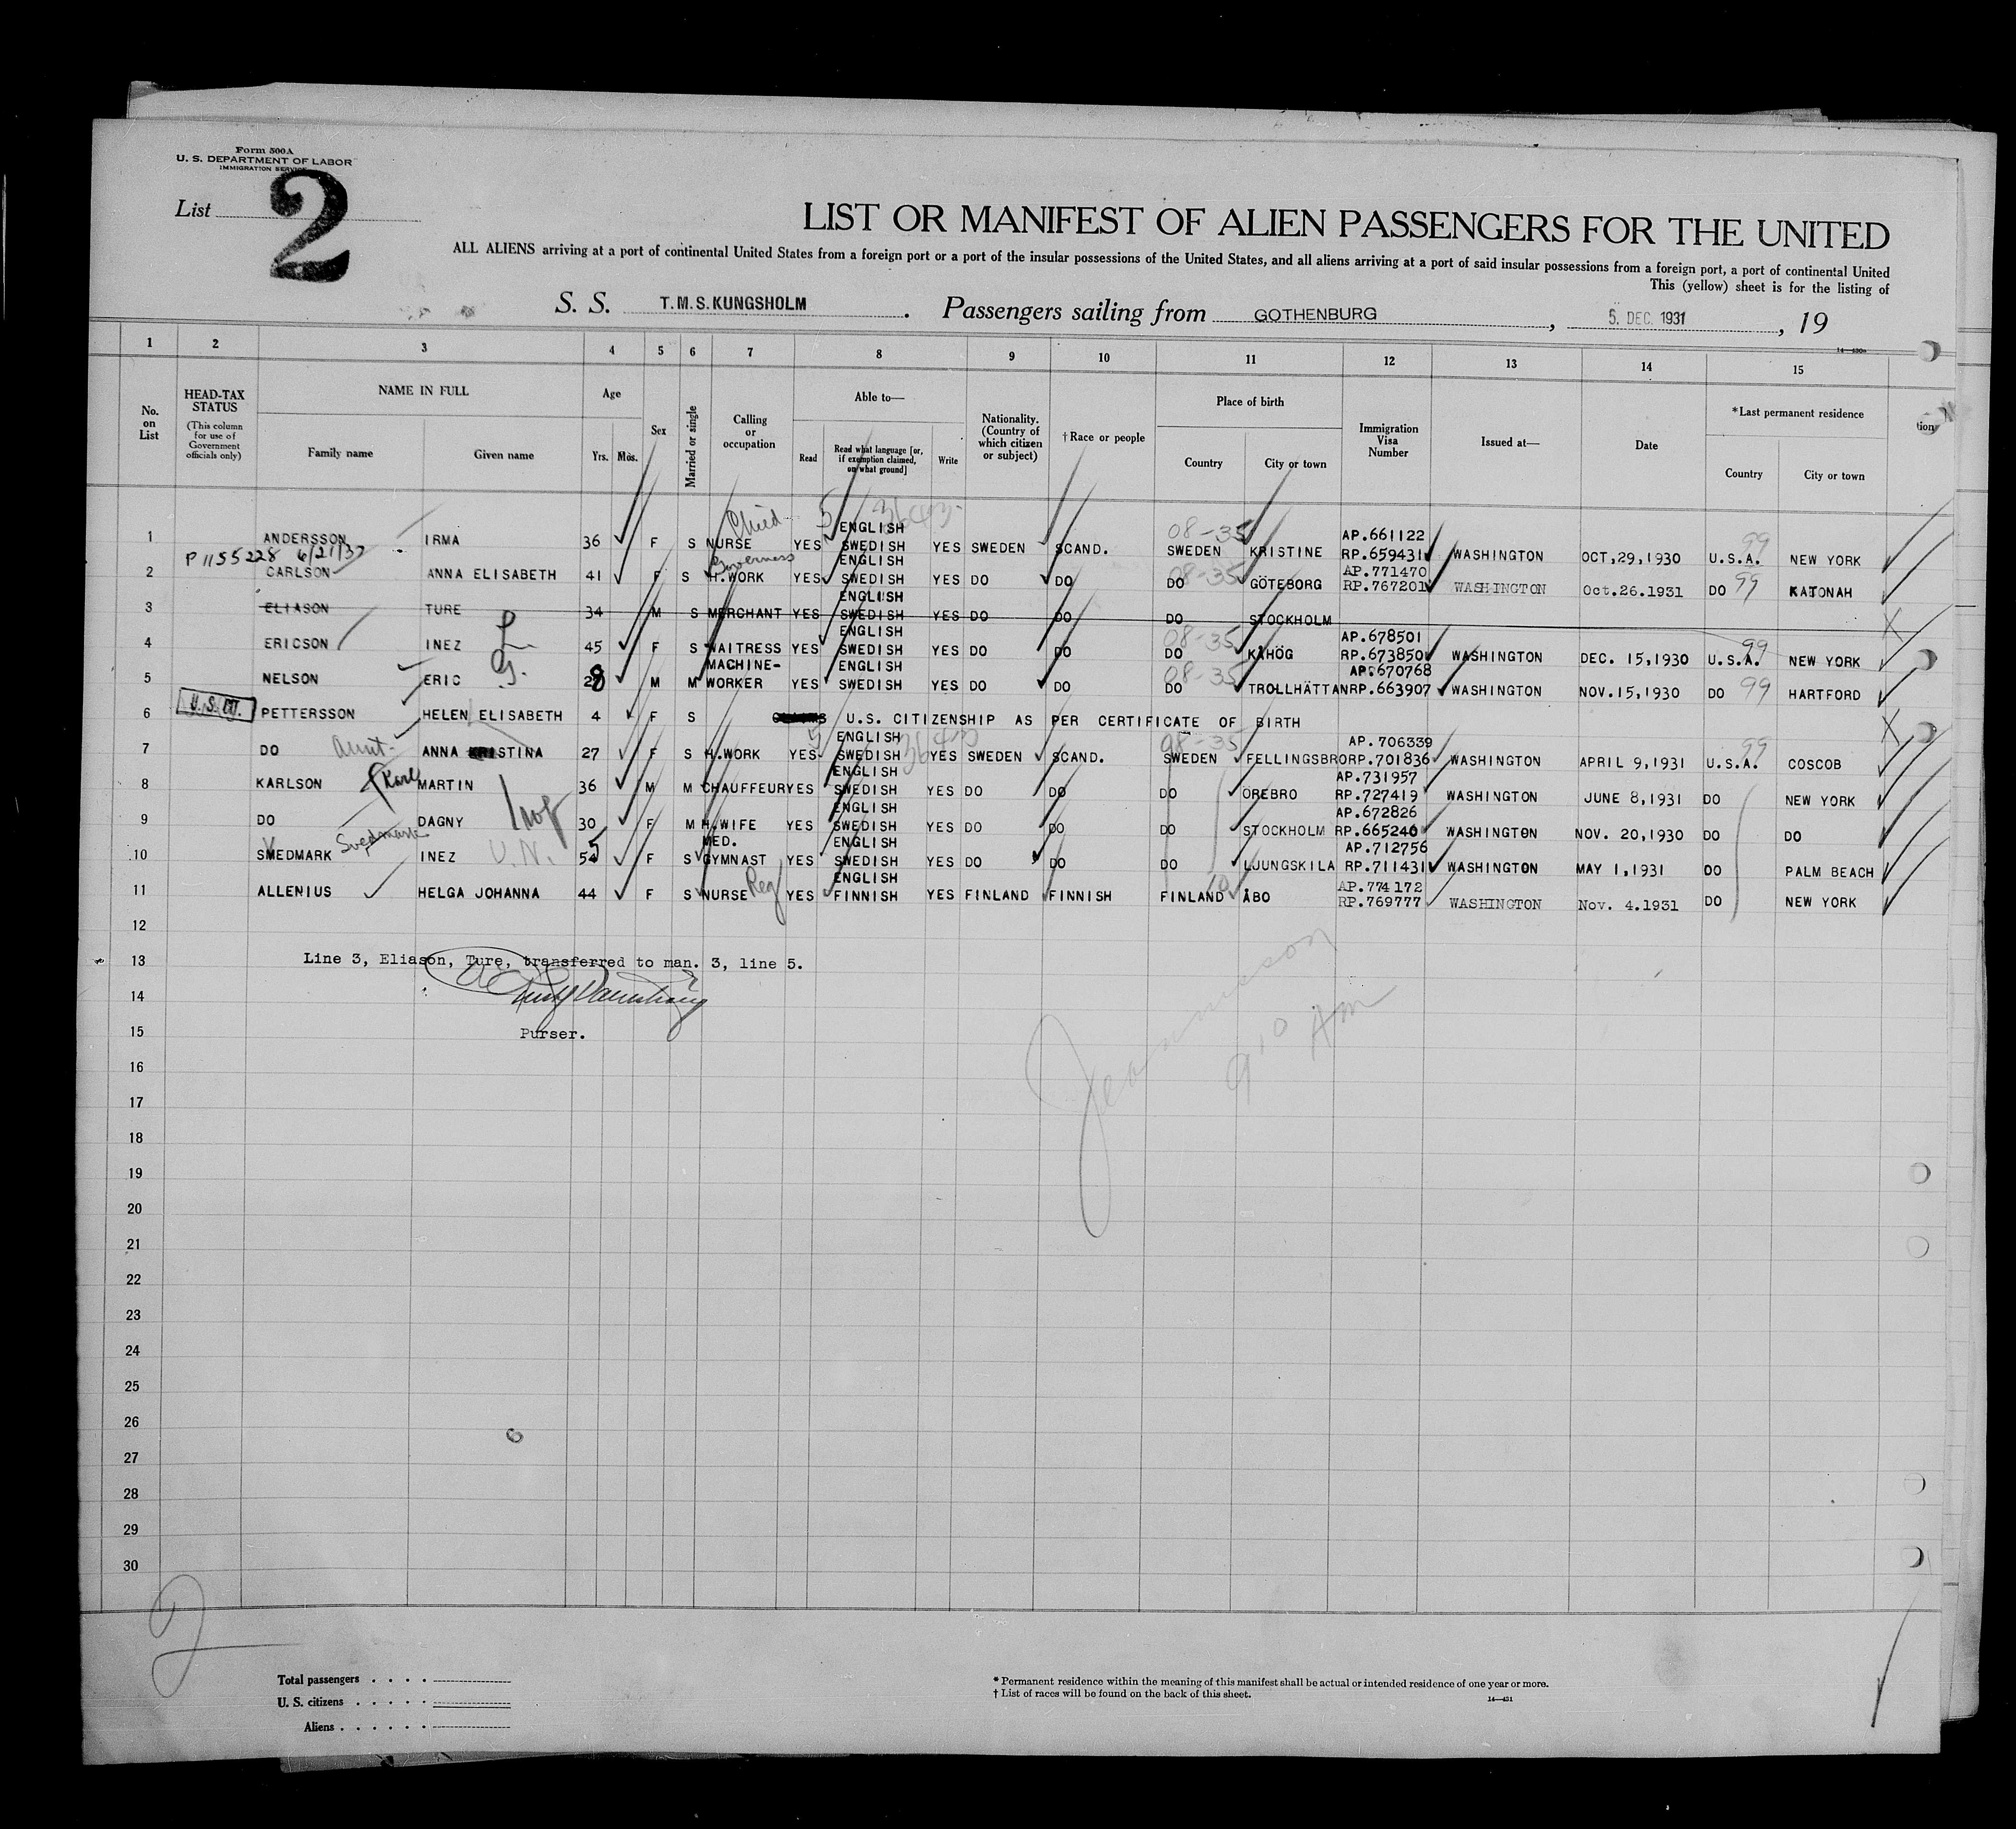 Form 500A
U. S. DEPARTMENT OF LABOR
IMMIGRATION SERVICE
List 2
LIST OR MANIFEST OF ALIEN PASSENGERS FOR THE UNITED
ALL ALIENS arriving at a port of continental United States from a foreign port or a port of the insular possessions of the United States, and all aliens arriving at a port of said insular possessions from a foreign port, a port of continental United
This (yellow) sheet is for the listing of
S. S. T.M.S. KUNGSHOLM. Passengers sailing from GOTHENBURG, 5. DEC. 1931, 19
14—430a
1 2 3 4 5 6 7 8 9 10 11 12 13 14 15
No. on List
HEAD-TAX STATUS
(This column for use of Government officials only)
NAME IN FULL
Family name Given name
Age
Yrs. Mos.
Sex
Married or single
Calling or occupation
Able to—
Read Read what language [or, if exemption claimed, on what ground] Write
Nationality. (Country of which citizen or subject)
†Race or people
Place of birth
Country City or town
Immigration Visa Number
Issued at—
Date
*Last permanent residence
Country City or town
tion
Child 5 36403
1 ANDERSSON IRMA 36 F S NURSE YES ENGLISH SWEDISH YES SWEDEN SCAND. 08-35 SWEDEN KRISTINE AP.661122 RP.659431 WASHINGTON OCT,29,1930 99 U.S.A. NEW YORK
P 1155228 6/21/37 Governess
2 CARLSON ANNA ELISABETH 41 F S H.WORK YES ENGLISH SWEDISH YES DO DO 08-35 DO GÖTEBORG AP.771470 RP.767201 WASHINGTON Oct.26.1931 DO 99 KATONAH
3 ELIASON TURE 34 M S MERCHANT YES ENGLISH SWEDISH YES DO DO DO STOCKHOLM X
4 ERICSON INEZ 45 F S WAITRESS YES ENGLISH SWEDISH YES DO DO 08-35 DO KÅHÖG AP.678501 RP.673850 WASHINGTON DEC. 15,1930 99 U.S.A. NEW YORK
5 NELSON ERIC 28 M M MACHINE-WORKER YES ENGLISH SWEDISH YES DO DO 08-35 DO TROLLHÄTTAN AP.670768 RP.663907 WASHINGTON NOV.15,1930 DO 99 HARTFORD
6 PETTERSSON HELEN ELISABETH 4 F S U.S. CITIZENSHIP AS PER CERTIFICATE OF BIRTH X
7 DO Aunt ANNA KRISTINA 27 F S H.WORK YES ENGLISH SWEDISH YES SWEDEN SCAND. 08-35 SWEDEN FELLINGSBRO AP.706339 RP.701836 WASHINGTON APRIL 9,1931 99 U.S.A. COSCOB
8 KARLSON Karl MARTIN 36 M M CHAUFFEUR YES ENGLISH SWEDISH YES DO DO DO ÖREBRO AP.731957 RP.727419 WASHINGTON JUNE 8,1931 DO NEW YORK
9 DO DAGNY wf 30 F M H.WIFE YES ENGLISH SWEDISH YES DO DO DO STOCKHOLM AP.672826 RP.665240 WASHINGTON NOV. 20,1930 DO DO
Svedmark
10 SMEDMARK INEZ V.N. 55 F S MED. GYMNAST YES ENGLISH SWEDISH YES DO DO DO LJUNGSKILA AP.712756 RP.711431 WASHINGTON MAY 1,1931 DO PALM BEACH
11 ALLENIUS HELGA JOHANNA 44 F S NURSE Reg YES ENGLISH FINNISH YES FINLAND FINNISH FINLAND 10 ÅBO AP.774172 RP.769777 WASHINGTON Nov. 4.1931 DO NEW YORK
12
13 Line 3, Eliason, Ture, transferred to man. 3, line 5.
14
15 Purser.
9 10 AM
16
17
18
19
20
21
22
23
24
25
26
27
28
29
30
2
Total passengers
U. S. citizens
Aliens
* Permanent residence within the meaning of this manifest shall be actual or intended residence of one year or more.
† List of races will be found on the back of this sheet.
14—431